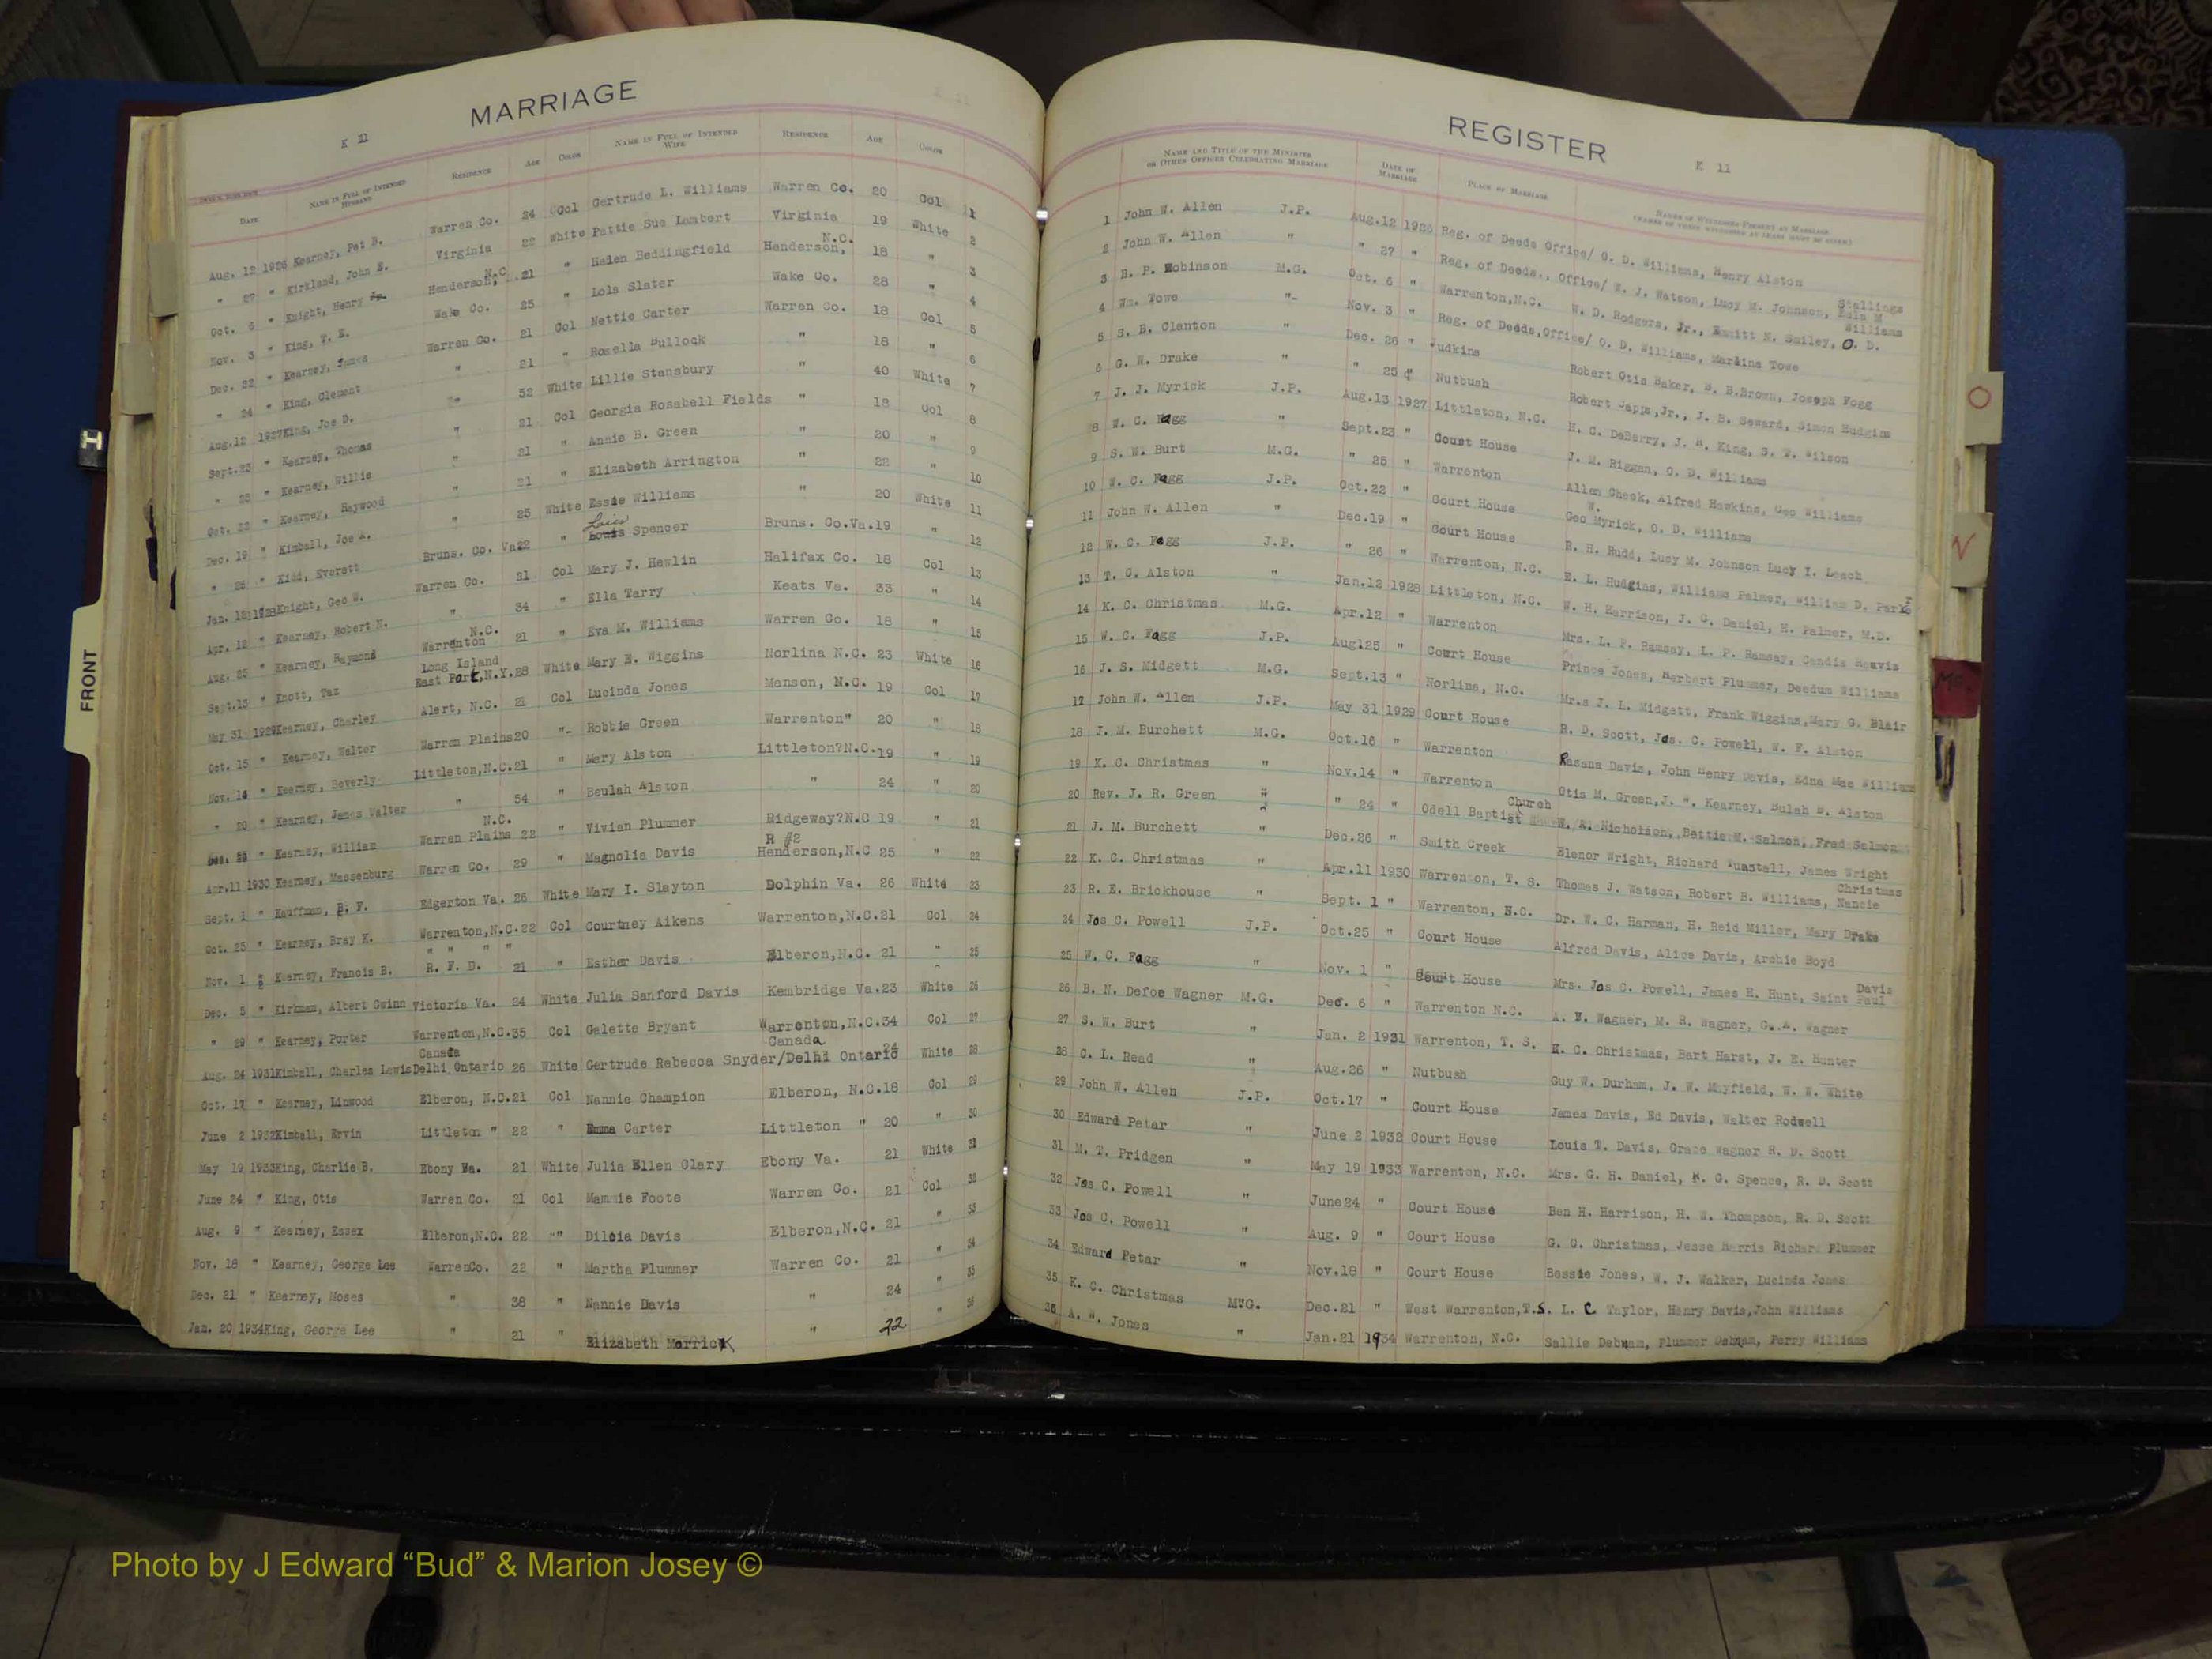 MARRIAGE
K 11
DATE NAME IN FULL OF INTENDED HUSBAND RESIDENCE AGE COLOR NAME IN FULL OF INTENDED WIFE RESIDENCE AGE COLOR
Aug. 12 1926 Kearney, Pet B. Warren Co. 24 Col Gertrude L. Williams Warren Co. 20 Col 1
" 27 " Kirkland, John S. Virginia 22 White Pattie Sue Lambert Virginia 19 White 2
Oct. 6 " Knight, Henry Jr. Henderson, N.C. 21 " Helen Beddingfield Henderson, N.C. 18 " 3
Nov. 3 " King, T. E. Wake Co. 25 " Lola Slater Wake Co. 28 " 4
Dec. 22 " Kearney, James Warren Co. 21 Col Nettie Carter Warren Co. 18 Col 5
" 24 " King, Clement " 21 " Rosella Bullock " 18 " 6
Aug.12 1927 King, Joe D. " 52 White Lillie Stansbury " 40 White 7
Sept.23 " Kearney, Thomas " 21 Col Georgia Rosabell Fields " 18 Col 8
" 25 " Kearney, Willie " 21 " Annie B. Green " 20 " 9
Oct. 22 " Kearney, Haywood " 21 " Elizabeth Arrington " 22 " 10
Dec. 19 " Kimball, Joe A. " 25 White Essie Williams " 20 White 11
" 26 " Kidd, Everett Bruns. Co. Va. 22 " Lois Spencer Bruns. Co.Va. 19 " 12
Jan. 12 1928 Knight, Geo W. Warren Co. 21 Col Mary J. Hewlin Halifax Co. 18 Col 13
Apr. 12 " Kearney, Robert H. " 34 " Ella Tarry Keats Va. 33 " 14
Aug. 25 " Kearney, Raymond Warrenton N.C. 21 " Eva M. Williams Warren Co. 18 " 15
Sept.13 " Knott, Taz Long Island East Port, N.Y. 28 White Mary E. Wiggins Norlina N.C. 23 White 16
May 31 1929 Kearney, Charley Alert, N.C. 21 Col Lucinda Jones Manson, N.C. 19 Col 17
Oct. 15 " Kearney, Walter Warren Plains 20 " Robbie Green Warrenton " 20 " 18
Nov. 14 " Kearney, Beverly Littleton, N.C. 21 " Mary Alston Littleton?N.C. 19 " 19
" 20 " Kearney, James Walter " 54 " Beulah Alston " 24 " 20
Dec. 23 " Kearney, William Warren Plains N.C. 22 " Vivian Plummer Ridgeway?N.C 19 " 21
Apr.11 1930 Kearney, Massenburg Warren Co. 29 " Magnolia Davis R #2 Henderson, N.C 25 " 22
Sept. 1 " Kauffman, B. F. Edgerton Va. 26 White Mary I. Slayton Dolphin Va. 26 White 23
Oct. 25 " Kearney, Bray K. Warrenton, N.C. 22 Col Courtney Aikens Warrenton, N.C. 21 Col 24
Nov. 1 " Kearney, Francis B. " " " " R. F. D. 21 " Esther Davis Elberon, N.C. 21 " 25
Dec. 5 " Kirkman, Albert Gwinn Victoria Va. 24 White Julia Sanford Davis Kembridge Va. 23 White 26
" 29 " Kearney, Porter Warrenton, N.C. 35 Col Galette Bryant Warrenton, N.C. 34 Col 27
Aug. 24 1931 Kimball, Charles Lewis Canada Delhi Ontario 26 White Gertrude Rebecca Snyder/Delhi Ontario Canada 24 White 28
Oct. 17 " Kearney, Linwood Elberon, N.C. 21 Col Nannie Champion Elberon, N.C. 18 Col 29
June 2 1932 Kimball, Ervin Littleton " 22 " Emma Carter Littleton " 20 " 30
May 19 1933 King, Charlie B. Ebony Va. 21 White Julia Ellen Clary Ebony Va. 21 White 31
June 24 " King, Otis Warren Co. 21 Col Mammie Foote Warren Co. 21 Col 32
Aug. 9 " Kearney, Essex Elberon, N.C. 22 " Dilcia Davis Elberon, N.C. 21 " 33
Nov. 18 " Kearney, George Lee WarrenCo. 22 " Martha Plummer Warren Co. 21 " 34
Dec. 21 " Kearney, Moses " 38 " Nannie Davis " 24 " 35
Jan. 20 1934 King, George Lee " 21 " Elizabeth Merrick " 22 " 36
REGISTER
K 11
NAME AND TITLE OF THE MINISTER OR OTHER OFFICER CELEBRATING MARRIAGE DATE OF MARRIAGE PLACE OF MARRIAGE NAMES OF WITNESSES PRESENT AT MARRIAGE
1 John W. Allen J.P. Aug.12 1926 Reg. of Deeds Office/ O. D. Williams, Henry Alston
2 John W. Allen " " 27 " Reg. of Deeds., Office/ W. J. Watson, Lucy M. Johnson, Stallings Eula M
3 B. P. Robinson M.G. Oct. 6 " Warrenton, N.C. W. D. Rodgers, Jr., Emmitt N. Smiley, O. D. Williams
4 Wm. Towe " Nov. 3 " Reg. of Deeds, Office/ O. D. Williams, Marlina Towe
5 S. B. Clanton " Dec. 26 " Judkins Robert Otis Baker, B. B.Brown, Joseph Fogg
6 G. W. Drake " " 25 " Nutbush Robert Capps,Jr., J. B. Seward, Simon Hudgins
7 J. J. Myrick J.P. Aug.13 1927 Littleton, N.C. H. C. DeBerry, J. R. King, S. T. Wilson
8 W. C. Fagg " Sept.23 " Court House J. M. Riggan, O. D. Williams
9 S. W. Burt M.G. " 25 " Warrenton Allen Cheek, Alfred Hawkins, Geo Williams
10 W. C. Fagg J.P. Oct.22 " Court House Geo W. Myrick, O. D. Williams
11 John W. Allen " Dec.19 " Court House R. H. Rudd, Lucy M. Johnson Lucy I. Leach
12 W. C. Fagg J.P. " 26 " Warrenton, N.C. E. L. Hudgins, Williams Palmer, William D. Parks
13 T. C. Alston " Jan.12 1928 Littleton, N.C. W. H. Harrison, J. G. Daniel, H. Palmer, M.D.
14 K. C. Christmas M.G. Apr.12 " Warrenton Mrs. L. P. Ramsay, L. P. Ramsay, Candis Reavis
15 W. C. Fagg J.P. Aug.25 " Court House Prince Jones, Herbert Plummer, Deedum Williams
16 J. S. Midgett M.G. Sept.13 " Norlina, N.C. Mr.s J. L. Midgett, Frank Wiggins,Mary G. Blair
17 John W. Allen J.P. May 31 1929 Court House R. D. Scott, Jos. C. Powell, W. F. Alston
18 J. M. Burchett M.G. Oct.16 " Warrenton Rasana Davis, John Henry Davis, Edna Mae Williams
19 K. C. Christmas " Nov.14 " Warrenton Otis M. Green,J. W. Kearney, Bulah B. Alston
20 Rev. J. R. Green " " 24 " Odell Baptist Church W. A. Nicholson, Bettie M. Salmon, Fred Salmon
21 J. M. Burchett " Dec.26 " Smith Creek Elenor Wright, Richard Tunstall, James Wright
22 K. C. Christmas " Apr.11 1930 Warrenton, T. S. Thomas J. Watson, Robert B. Williams, Nancie Christmas
23 R. E. Brickhouse " Sept. 1 " Warrenton, N.C. Dr. W. C. Harman, H. Reid Miller, Mary Drake
24 Jos C. Powell J.P. Oct.25 " Court House Alfred Davis, Alice Davis, Archie Boyd
25 W. C. Fagg " Nov. 1 " Court House Mrs. Jos C. Powell, James H. Hunt, Saint Paul Davis
26 B. N. Defoe Wagner M.G. Dec. 6 " Warrenton N.C. A. V. Wagner, M. R. Wagner, C. A. Wagner
27 S. W. Burt " Jan. 2 1931 Warrenton, T. S. K. C. Christmas, Bart Harst, J. E. Hunter
28 C. L. Read " Aug.26 " Nutbush Guy W. Durham, J. W. Mayfield, W. W. White
29 John W. Allen J.P. Oct.17 " Court House James Davis, Ed Davis, Walter Rodwell
30 Edward Petar " June 2 1932 Court House Louis T. Davis, Grace Wagner R. D. Scott
31 M. T. Pridgen " May 19 1933 Warrenton, N.C. Mrs. G. H. Daniel, R. G. Spence, R. D. Scott
32 Jos C. Powell " June24 " Court House Ben H. Harrison, H. W. Thompson, R. D. Scott
33 Jos C. Powell " Aug. 9 " Court House G. C. Christmas, Jesse Harris Richard Plummer
34 Edward Petar " Nov.18 " Court House Bessie Jones, W. J. Walker, Lucinda Jones
35 K. C. Christmas M.G. Dec.21 " West Warrenton,T.S. L. C Taylor, Henry Davis,John Williams
36 A. W. Jones " Jan.21 1934 Warrenton, N.C. Sallie Debnam, Plummer Debnam, Perry Williams
FRONT
O
N
Mc
Photo by J Edward “Bud” & Marion Josey ©